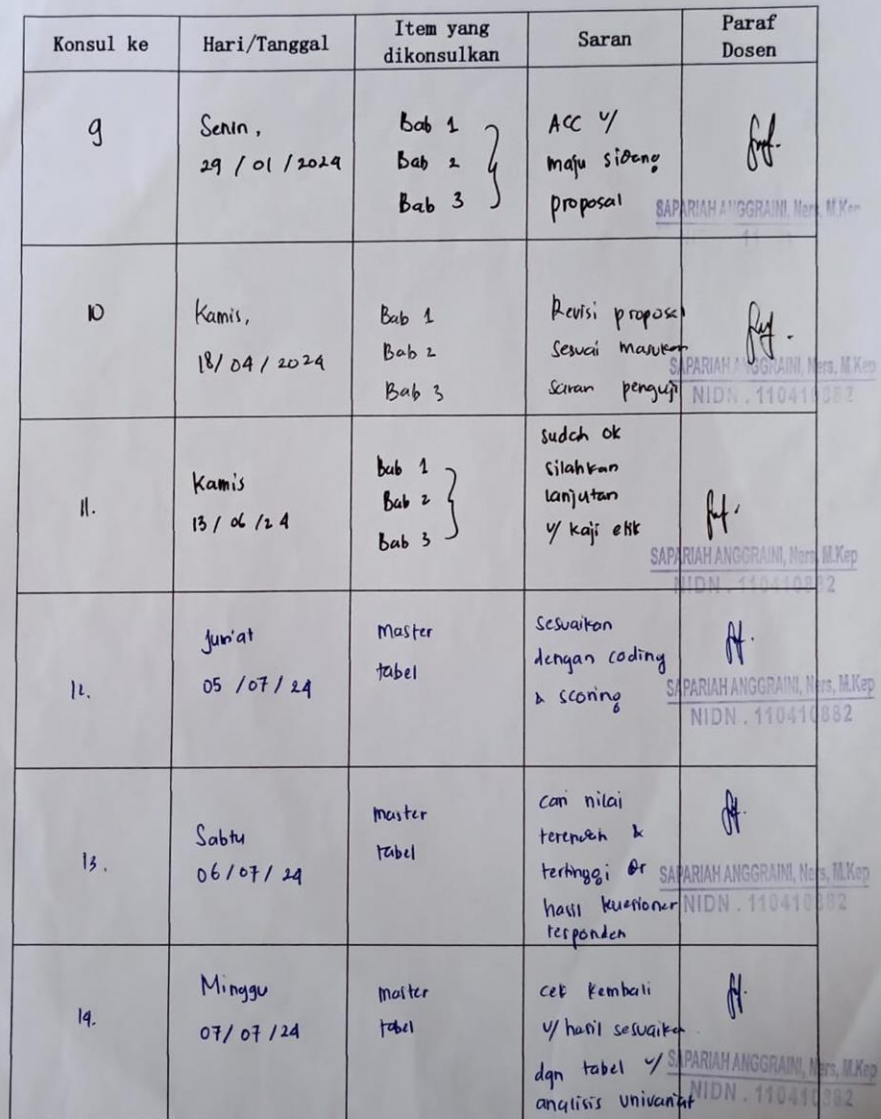 Konsul ke Hari/Tanggal Item yang dikonsulkan Saran Paraf Dosen
9 Senin, 29 / 01 / 2024
Bab 1
Bab 2
Bab 3
ACC u/
maju sidang
proposal
SAPARIAH ANGGRAINI, Ners, M.Kep
10 Kamis, 18/ 04 / 2024
Bab 1
Bab 2
Bab 3
Revisi proposal
sesuai masukan
saran penguji
SAPARIAH ANGGRAINI, Ners, M.Kep
NIDN . 110410882
11. Kamis 13 / 06 /24
Bab 1
Bab 2
Bab 3
sudah ok
silahkan
lanjutan
u/ kaji etik
SAPARIAH ANGGRAINI, Ners, M.Kep
NIDN . 110410882
12. Jum'at 05 /07 / 24
Master
tabel
Sesuaikan
dengan coding
& scoring
SAPARIAH ANGGRAINI, Ners, M.Kep
NIDN . 110410882
13. Sabtu 06/07/ 24
master
tabel
cari nilai
terendah &
tertinggi dr
hasil kuesioner
responden
SAPARIAH ANGGRAINI, Ners, M.Kep
NIDN . 110410882
14. Minggu 07/ 07 /24
master
tabel
cek kembali
u/ hasil sesuaikan
dgn tabel u/
analisis univariat
SAPARIAH ANGGRAINI, Ners, M.Kep
NIDN . 110410882